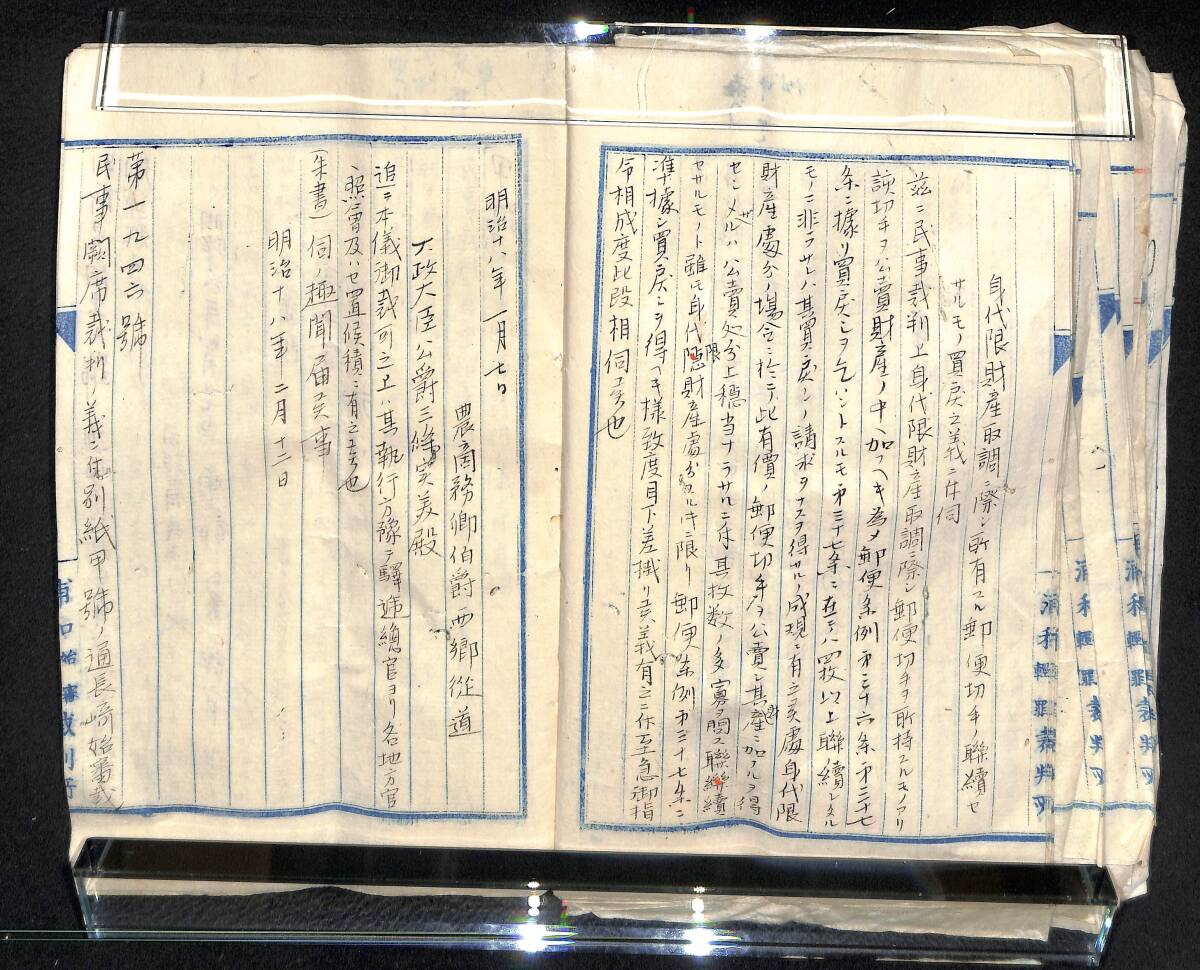 身代限財産取調ニ際シ所有スル郵便切手ノ聯續セ
サルモノ買戻之義ニ付伺
茲ニ民事裁判上身代限財産取調ニ際シ郵便切手ヲ所持スルモノアリ
該切手ヲ公賣財産ノ中ヘ加フヘキ為メ郵便条例第三十六条第三十七
条ニ據リ買戻シヲ乞ハントスルモ第三十七条ニ在テハ四枚以上聯續シタル
モノニ非ラサレハ其買戻シノ請求ヲナスヲ得サルノ成規ニ有之候處身代限
財産處分ノ場合ニ於テ此有價ノ郵便切手ヲ公賣シ其財産ニ加フルヲ得
セシメサルハ公賣処分上穏当ナラサルニ付其枚数ノ多寡ヲ問ス聯續
セサルモノト雖モ身代限財産處分スル時ニ限リ郵便条例第三十七条ニ
準據シ買戻シヲ得ヘキ様致度目下差掛リ候義有之ニ付至急御指
令相成度此段相伺候也
明治十八年一月七日
農商務卿伯爵西郷從道
太政大臣公爵三條実美殿
追テ本儀御裁可之上ハ其執行方豫テ驛逓總官ヨリ各地方官
ヘ照會及ハセ置候積ニ有之候也
(朱書)伺ノ趣聞届候事
明治十八年二月十二日
第一九四六號
民事闕席裁判ノ義ニ付別紙甲號ノ通長崎始審裁
浦和輕罪裁判所
浦和輕罪裁判所
浦和輕罪裁判所